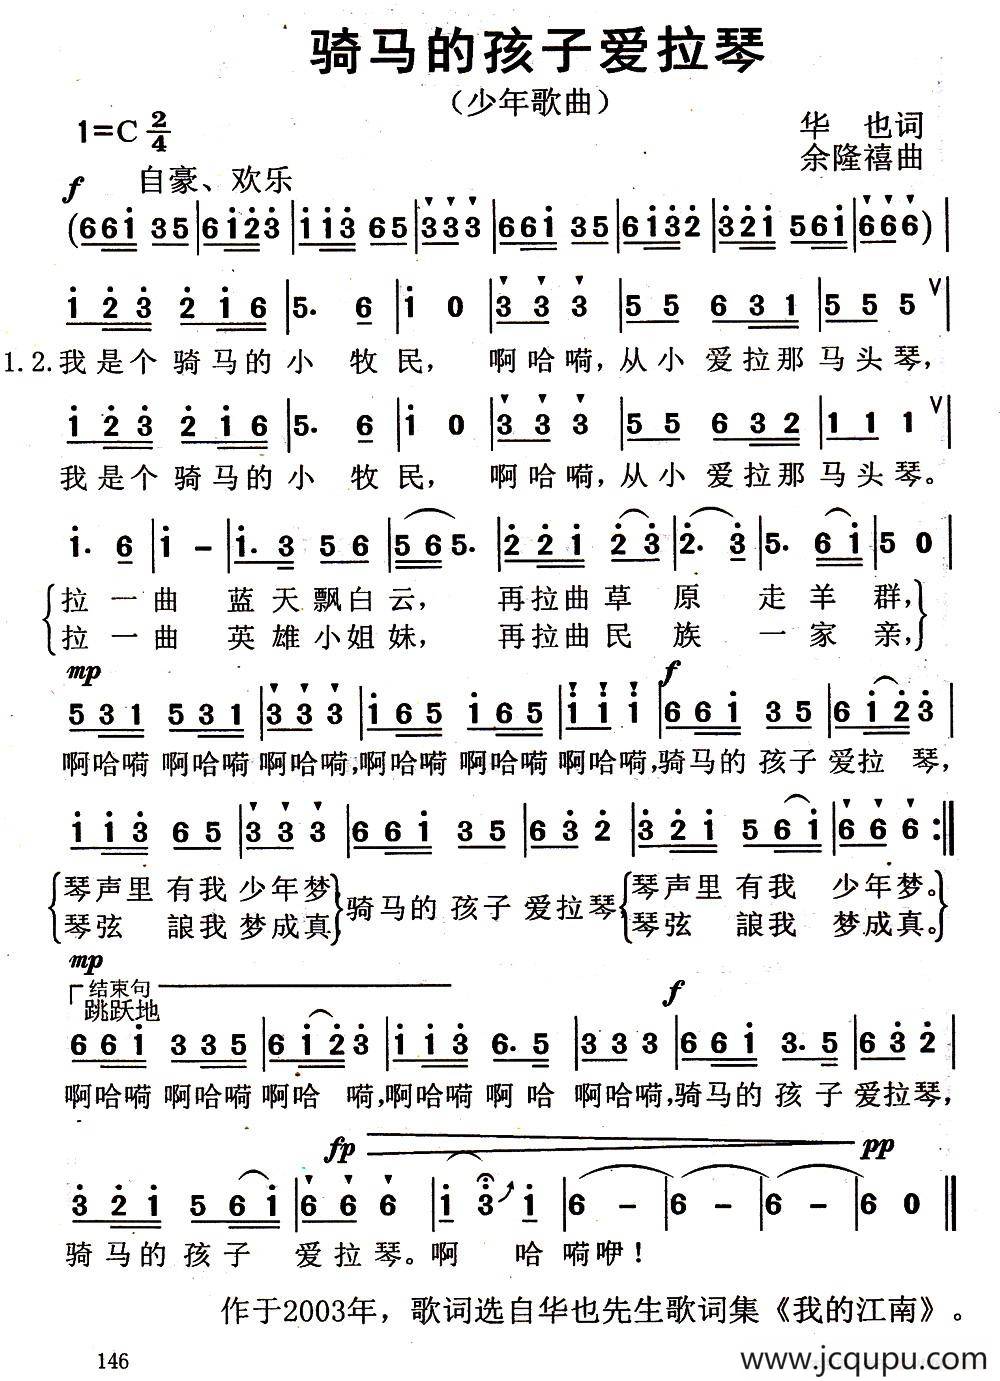 骑马的孩子爱拉琴
（少年歌曲）
1=C 2/4
华 也词
余隆禧曲
f 自豪、欢乐
(661 35|6123|113 65|333|661 35|6132|321 561|666)|
123 216|5. 6|1 0|333|55 631|555 ∨
1.2.我是个 骑马的 小 牧民， 啊哈嗬，从小 爱拉那 马头琴，
123 216|5. 6|1 0|333|55 632|111 ∨
我是个 骑马的 小 牧民， 啊哈嗬，从小 爱拉那 马头琴。
1. 6|1 -|1.3 56|565.|221 23|2. 3|5. 61|50|
拉一曲 蓝天飘白云， 再拉曲草 原 走羊 群，
拉一曲 英雄小姐妹， 再拉曲民 族 一家 亲，
mp f
531 531|333|165 165|111|661 35|6123|
啊哈嗬 啊哈嗬 啊哈嗬，啊哈嗬 啊哈嗬 啊哈嗬，骑马的 孩子 爱拉 琴，
113 65|333|661 35|632|321 561|666:‖
琴声里 有我 少年梦 骑马的 孩子 爱拉琴 琴声里 有我 少年梦。
琴弦 踉我 梦成真 琴弦 踉我 梦成真。
mp
结束句
跳跃地
f
661 335|6123|113 6.5|333|661 3.5|632|
啊哈嗬 啊哈嗬 啊哈 嗬，啊哈嗬 啊 哈 啊哈嗬，骑马的 孩 子 爱拉琴，
fp pp
321 561|666|1 3 1|6 -|6 -|6 -|60‖
骑马的 孩子 爱拉琴。啊 哈 嗬咿！
作于2003年，歌词选自华也先生歌词集《我的江南》。
146
www.jcqupu.com